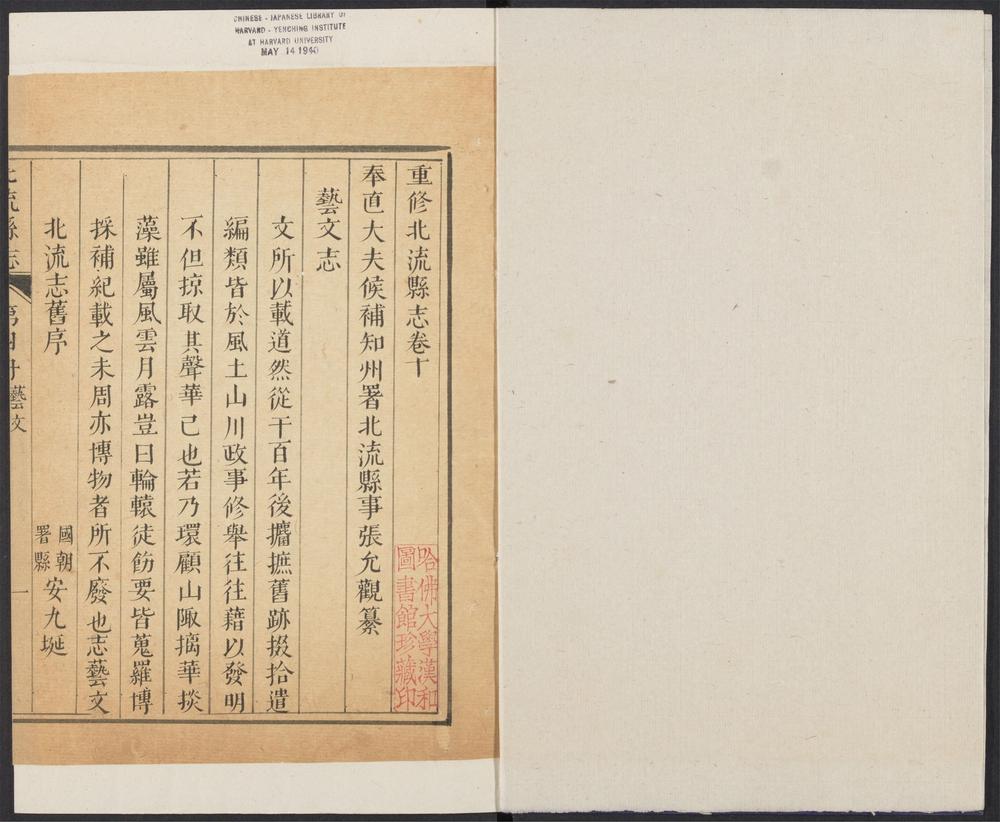 CHINESE - JAPANESE LIBRARY OF
HARVARD - YENCHING INSTITUTE
AT HARVARD UNIVERSITY
MAY 14 1940
重修北流縣志卷十
哈佛大學漢和
圖書館珍藏印
奉直大夫候補知州署北流縣事張允觀纂
藝文志
文所以載道然從千百年後攟摭舊跡掇拾遺
編類皆於風土山川政事修舉往往藉以發明
不但掠取其聲華己也若乃環顧山陬摛華掞
藻雖屬風雲月露豈曰輪轅徒飭要皆蒐羅博
採補紀載之未周亦博物者所不廢也志藝文
北流志舊序
國朝
署縣
安九埏
流縣志
藝文
一